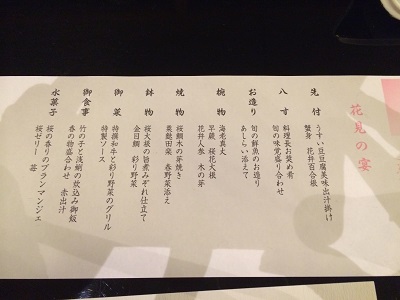 花見の宴
先付
うすい豆豆腐美味出汁掛け
蟹身 花弁百合根
八寸
料理長お奨め肴
旬の味覚盛り合わせ
お造り
旬の鮮魚のお造り
あしらい添えて
椀物
海老真丈
早蕨 桜花大根
花弁人参 木の芽
焼物
桜鯛木の芽焼き
粟麩田楽 春野菜添え
鉢物
桜大根の旨煮みぞれ仕立て
金目鯛 彩り野菜
御菜
特撰和牛と彩り野菜のグリル
特製ソース
御食事
竹の子と浅蜊の炊込み御飯
香の物盛合わせ 赤出汁
水菓子
桜の香りのブランマンジェ
桜ゼリー 苺